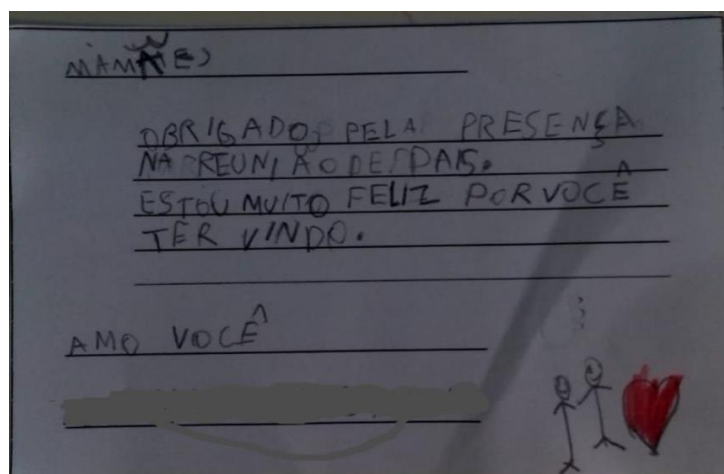 MAMÃE,
OBRIGADO PELA PRESENÇA
NA REUNIÃO DE PAIS.
ESTOU MUITO FELIZ POR VOCÊ
TER VINDO.
AMO VOCÊ